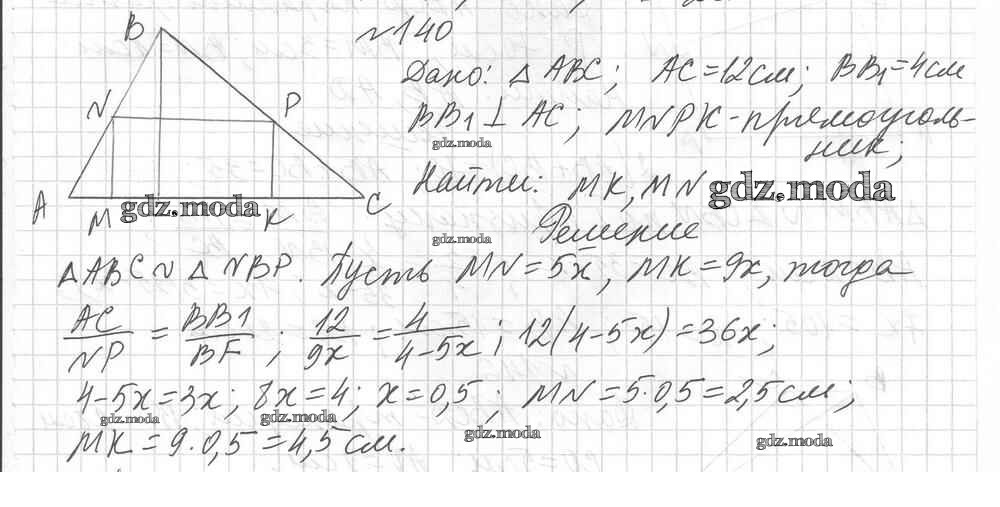 №140
B
Дано: △ABC; AC=12см; BB₁=4см
N
P
BB₁ ⊥ AC; MNPK-прямоуголь-
ник;
gdz.moda
Найти: MK, MN
gdz.moda
A
M
gdz.moda
K
C
Решение
gdz.moda
△ABC ~ △NBP. Пусть MN=5x, MK=9x, тогда
AC/NP = BB1/BF; 12/9x = 4/4-5x; 12(4-5x)=36x;
4-5x=3x; 8x=4; x=0,5; MN=5·0,5=2,5см;
gdz.moda
gdz.moda
MK=9·0,5=4,5см.
gdz.moda
gdz.moda